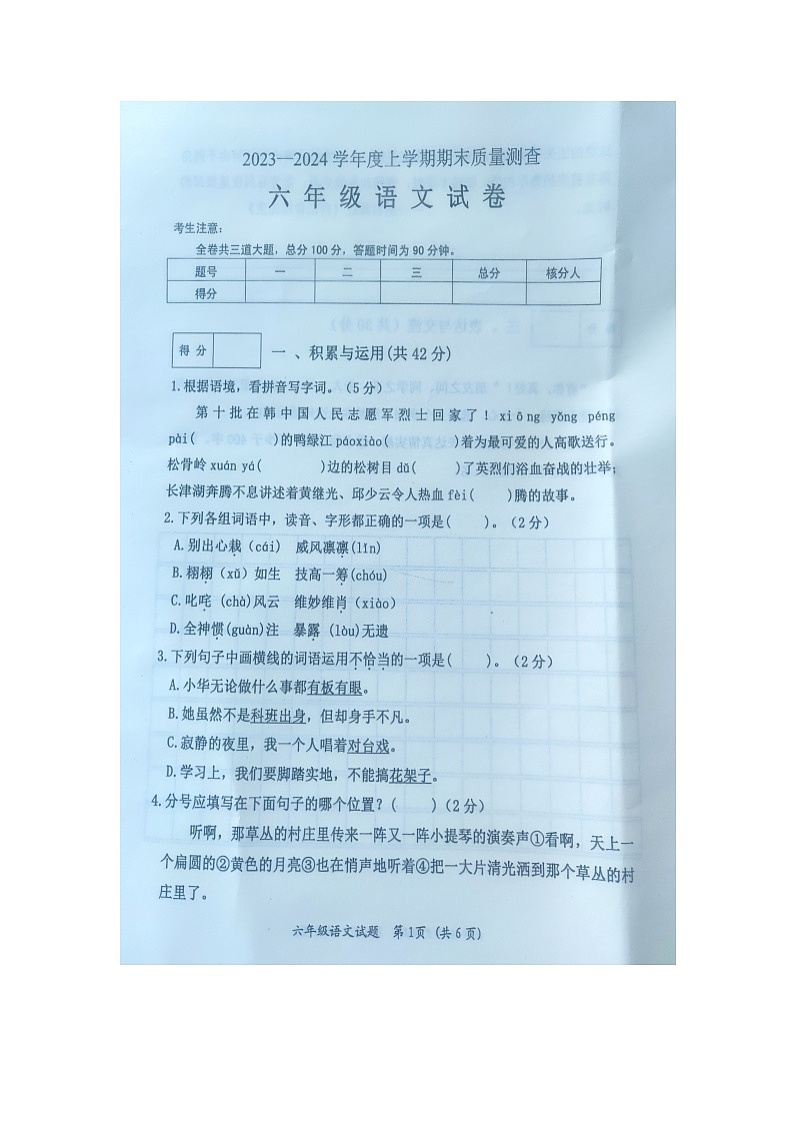 2023—2024 学年度上学期期末质量测查
六 年 级 语 文 试 卷
考生注意:
全卷共三道大题，总分 100 分，答题时间为 90 分钟。
题号 一 二 三 总分 核分人
得分
得 分
一 、积累与运用(共 42 分)
1.根据语境，看拼音写字词。（5 分）
第十批在韩中国人民志愿军烈士回家了！xiōng yǒng péng
pài( )的鸭绿江 páoxiào( )着为最可爱的人高歌送行。
松骨岭 xuán yá( )边的松树目 dǔ( )了英烈们浴血奋战的壮举；
长津湖奔腾不息讲述着黄继光、邱少云令人热血 fèi( )腾的故事。
2.下列各组词语中，读音、字形都正确的一项是( )。（2 分）
A.别出心栽（cái) 威风凛凛(lǐn)
B.栩栩（xǔ）如生 技高一筹(chóu)
C.叱咤 (chà)风云 维妙维肖（xiào）
D.全神惯(guàn)注 暴露 (lòu)无遗
3.下列句子中画横线的词语运用不恰当的一项是( )。（2 分）
A.小华无论做什么事都有板有眼。
B.她虽然不是科班出身，但却身手不凡。
C.寂静的夜里，我一个人唱着对台戏。
D.学习上，我们要脚踏实地，不能搞花架子。
4.分号应填写在下面句子的哪个位置？( )（2 分）
听啊，那草丛的村庄里传来一阵又一阵小提琴的演奏声①看啊，天上一
个扁圆的②黄色的月亮③也在悄声地听着④把一大片清光洒到那个草丛的村
庄里了。
六年级语文试题 第 1页 (共 6 页)